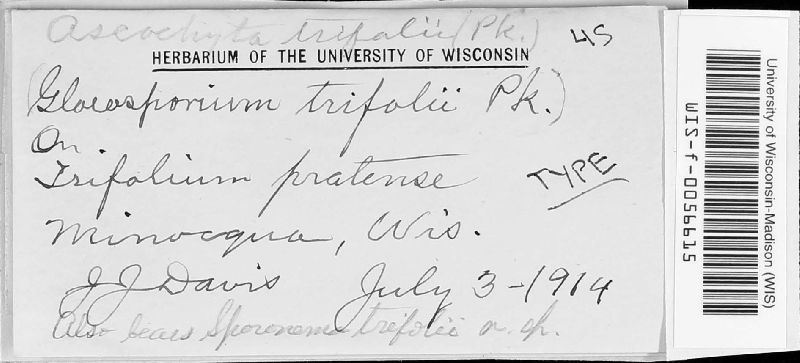 Ascochyta trifolii (Pk.)
45
HERBARIUM OF THE UNIVERSITY OF WISCONSIN
(Gloeosporium trifolii Pk.)
On
Trifolium pratense
TYPE
Minocqua, Wis.
J J Davis July 3-1914
Also bears Sporonema trifolii n. sp.
University of Wisconsin-Madison (WIS)
WIS-f-0056615